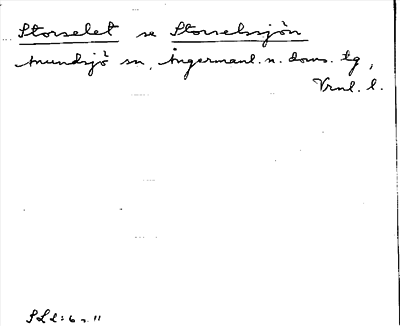 Storselet se Storselsjön
Anundsjö sn, Ångermanl. n. doms. tg,
Vrnl. l.